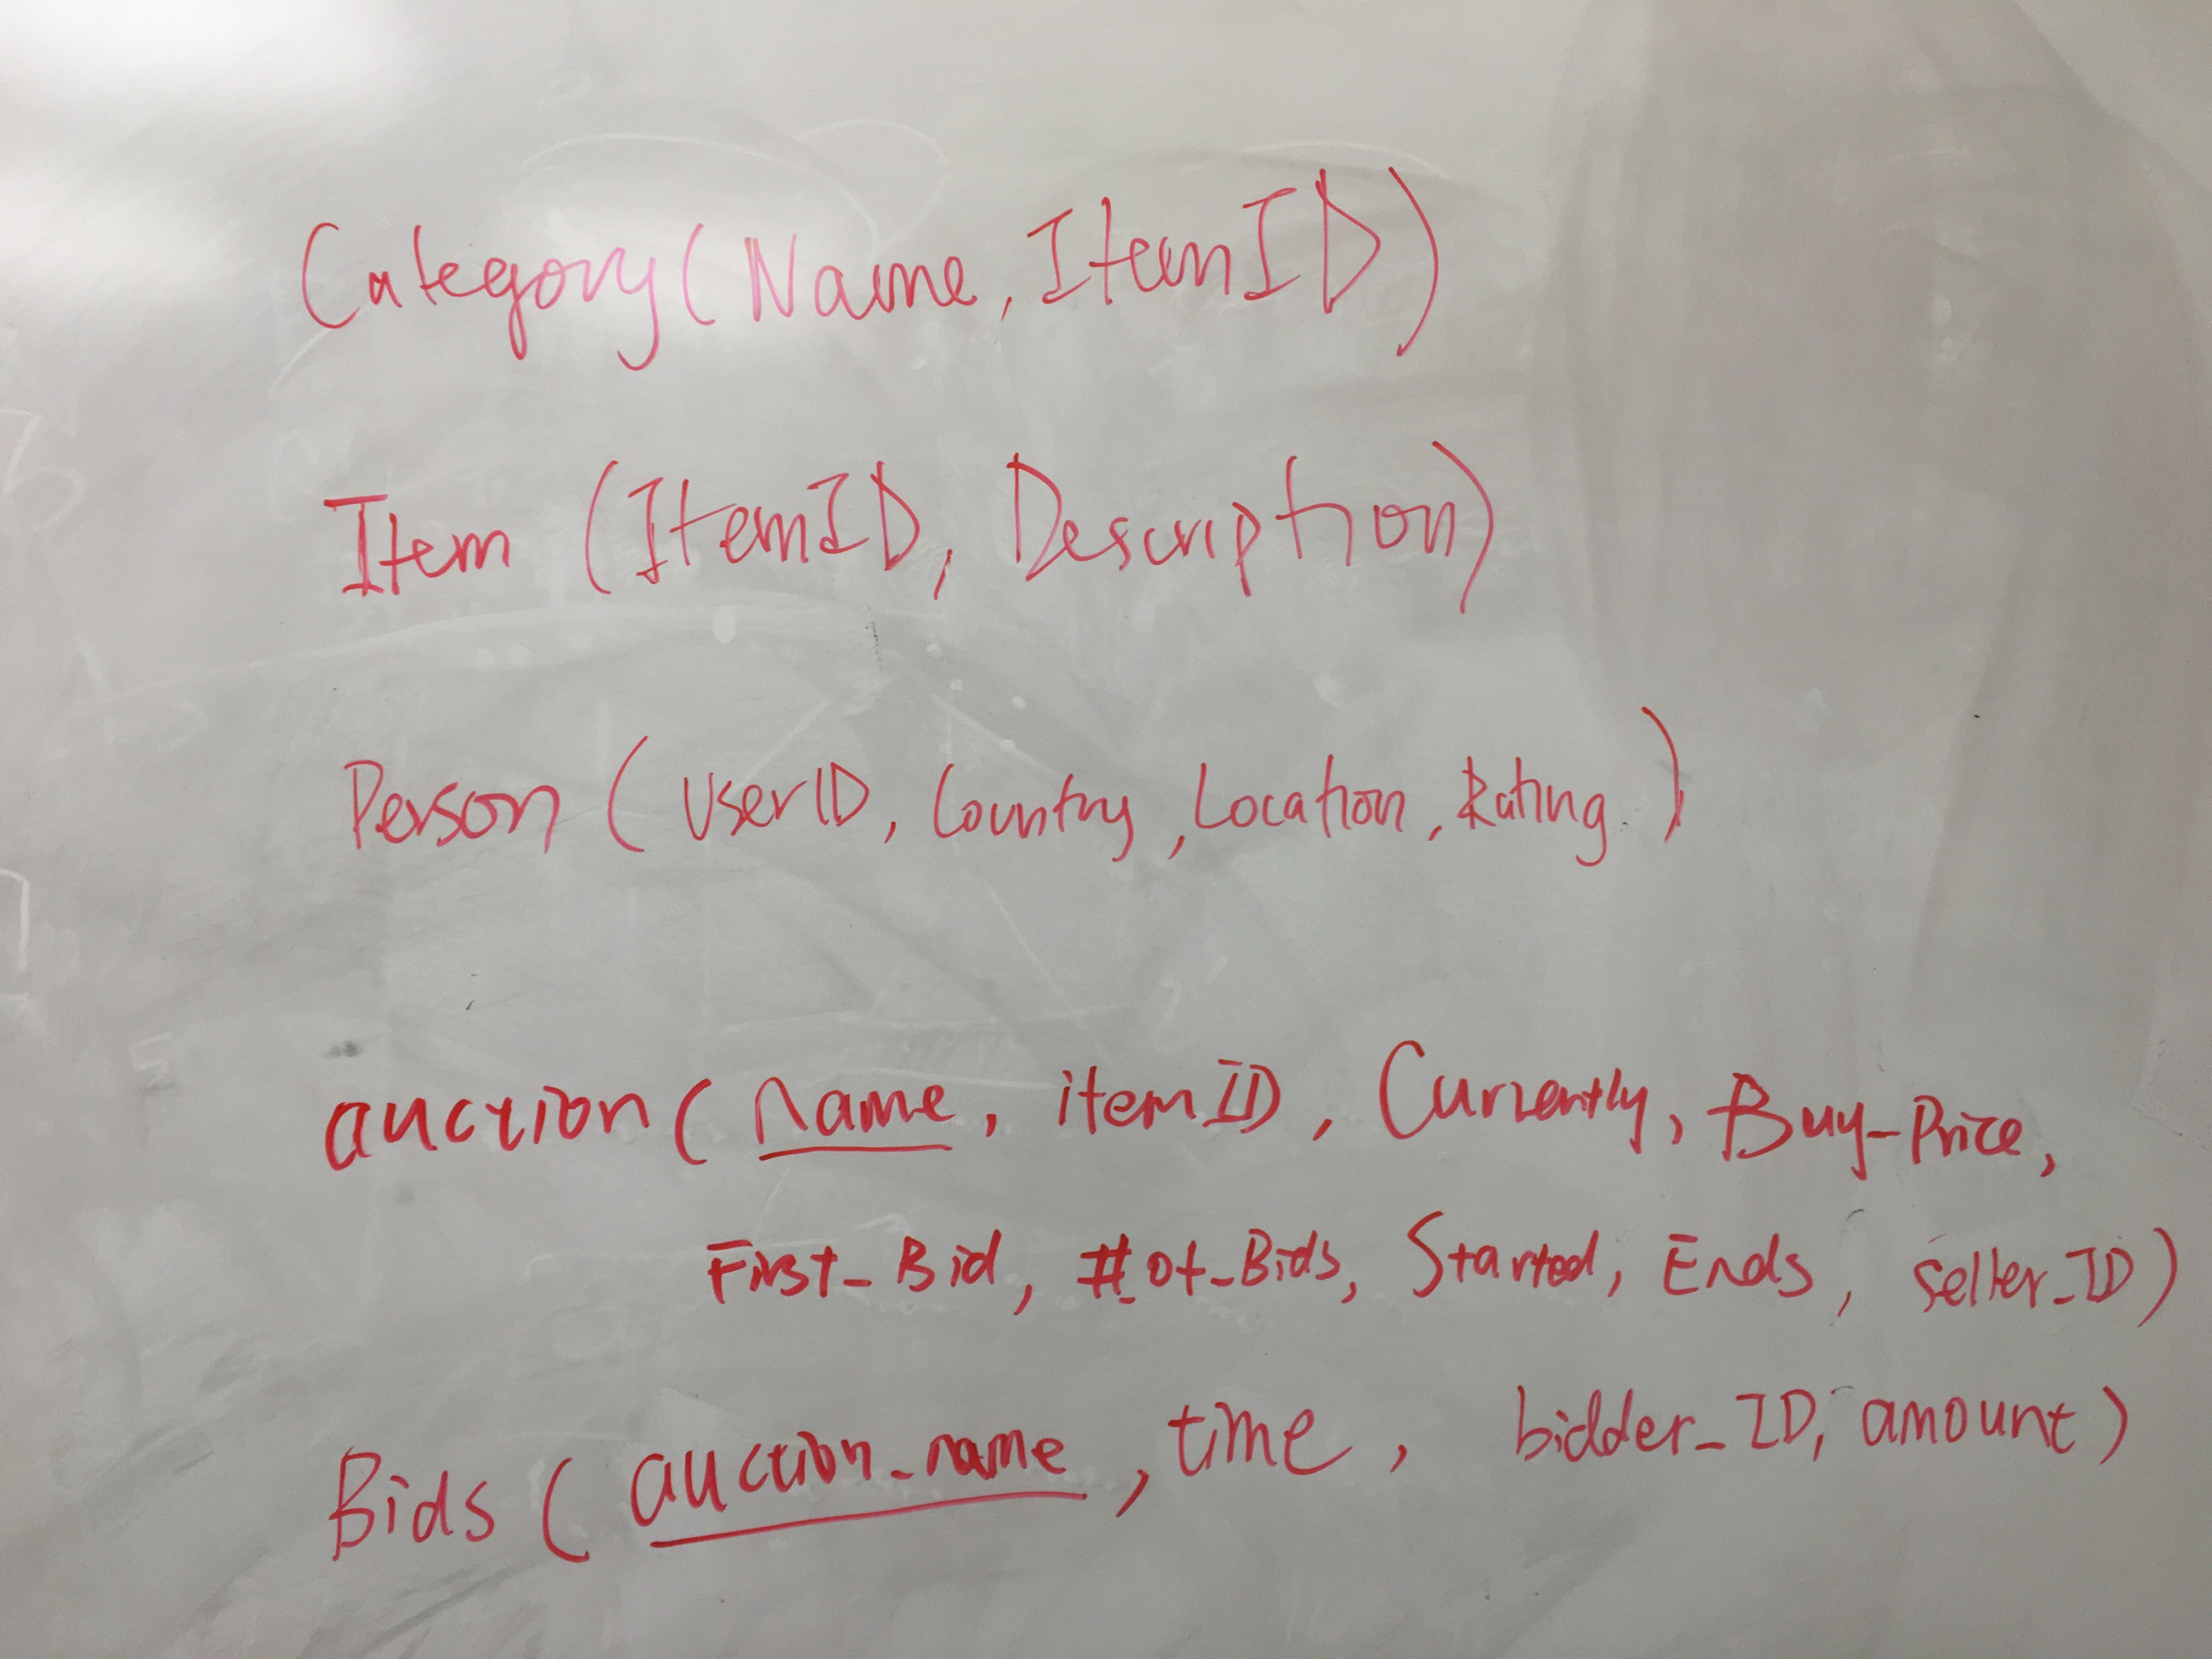 Category(Name, ItemID)
Item (ItemID, Description)
Person (UserID, Country, Location, Rating.)
auction(name, itemID, Currently, Buy_Price,
First_Bid, #of_Bids, Started, Ends, seller_ID)
Bids (auction_name, time, bidder_ID, amount)